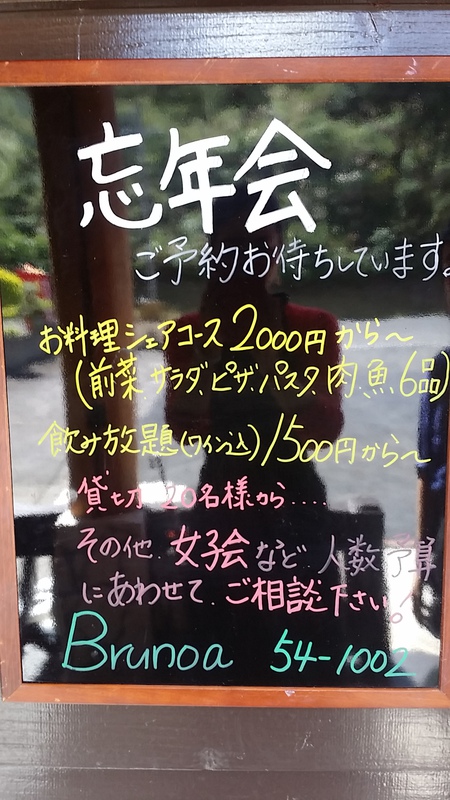 忘年会
ご予約お待ちしています。
お料理シェアコース2000円から～
(前菜、サラダ、ピザ、パスタ、肉、魚、6品)
飲み放題(ワイン込)1500円から～
貸切 20名様から.....
その他、女子会など、人数、予算
にあわせて、ご相談下さい!
Brunoa 54-1002